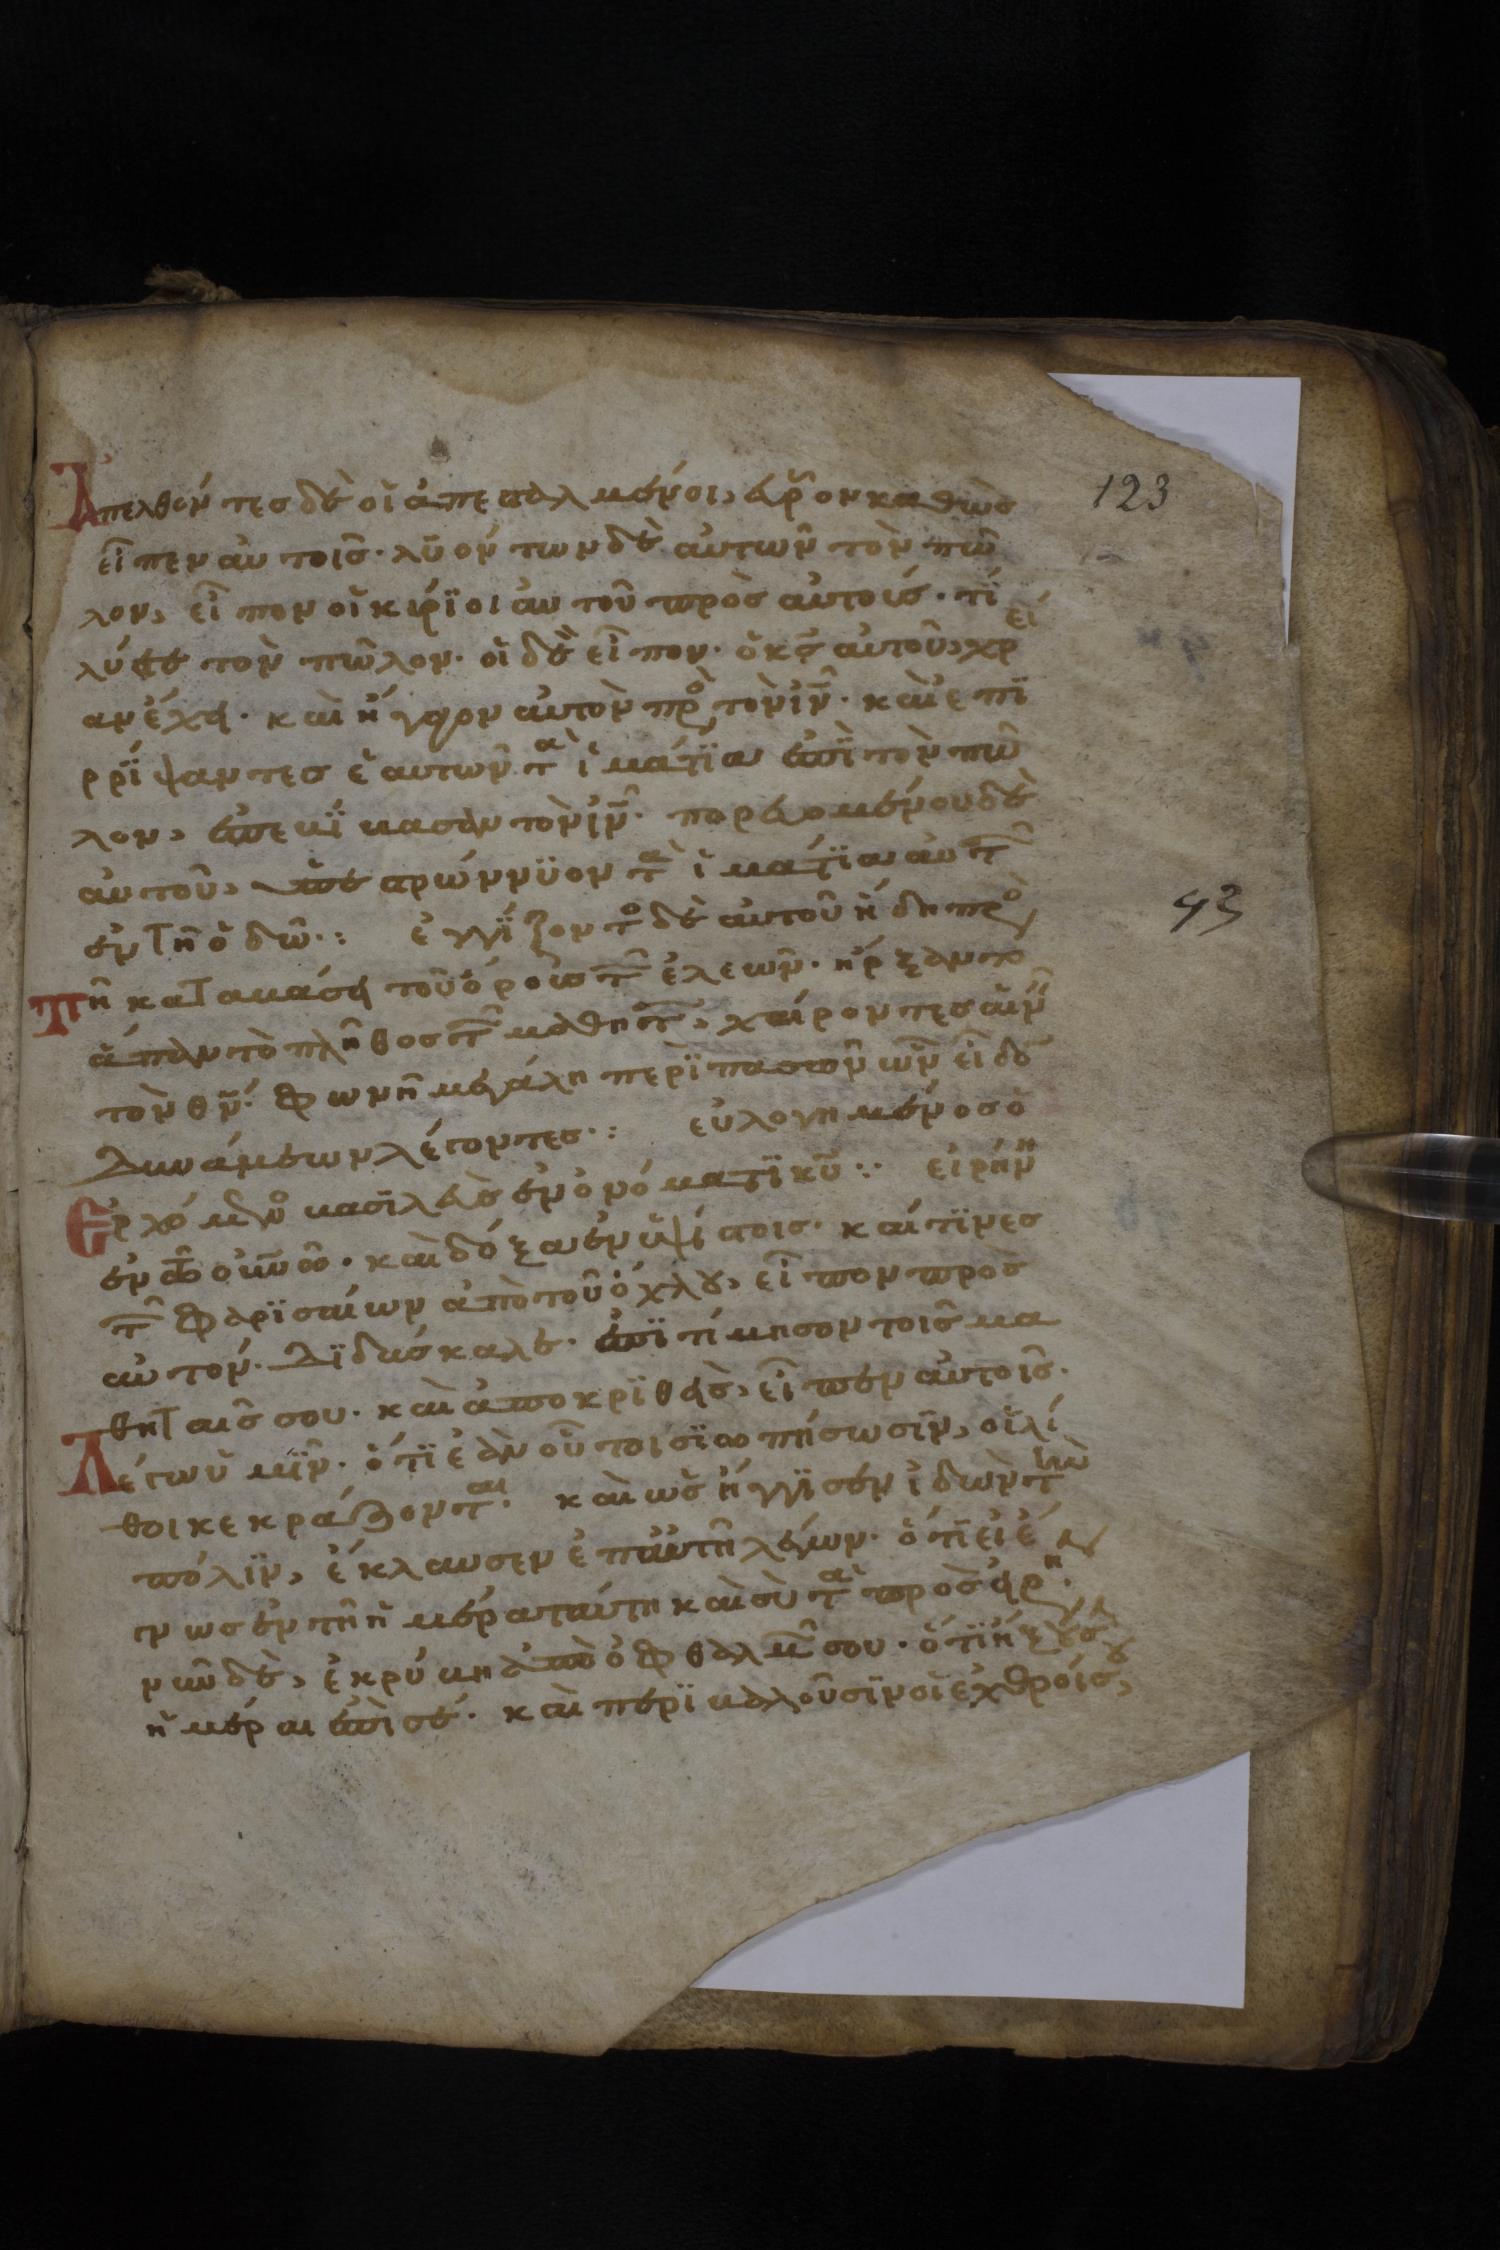 Ἀπελθόντες δὲ οἱ ἀπεσταλμένοι, εὗρον καθὼς
εἶπεν αὐτοῖς· λυόντων δὲ αὐτῶν τὸν πῶ
λον, εἶπον οἱ κύριοι αὐτοῦ πρὸς αὐτούς· τί
λύετε τὸν πῶλον· οἱ δὲ εἶπον· ὁ κς αὐτοῦ χρεί
αν ἔχει· καὶ ἤγαγον αὐτὸν πρὸ τὸν ιν· καὶ ἐπι
ρρίψαντες ἑαυτῶν τὰ ἱμάτια ἐπὶ τὸν πῶ
λον, ἐπεβίβασαν τὸν ιν· πορευομένου δὲ
αὐτοῦ, ὑπεστρώννυον τὰ ἱμάτια αὐτ
ἐν τῆ ὁδῶ·: ἐγγίζοντο δὲ αὐτοῦ ἤδη πρὸ
τῆ καταβάσει τοῦ ὄρους τ ἐλεῶν· ἤρξαντο
ἅπαν τὸ πλῆθος τ μαθητ, χαίροντες αἰν
τὸν θν· φωνῆ μεγάλη περὶ πασῶν ὧν εἶδο
δυνάμεων λέγοντες·: εὐλογημένος ὁ
ἐρχόμενο βασιλεὺς ἐν ὀνόματι κυ·: εἰρήνη
ἐν οὐνω· καὶ δόξα ἐν ὑψίστοις· καί τινες
τ φαρισαίων ἀπὸ τοῦ ὄχλου, εἶπον πρὸς
αὐτόν· διδάσκαλε· ἐπιτίμησον τοῖς μα
θηταῖς σου· καὶ ἀποκριθεὶς, εἶπεν αὐτοῖς·
λέγω ὑμῖν· ὅτι ἐὰν οὗτοι σιωπήσωσιν, οἱ λί
θοι κεκράξονται· καὶ ὡς ἤγγισεν ἰδὼν τὴν
πόλιν, ἔκλαυσεν ἐπ αὐτῆ λέγων· ὅτι εἰ ἔ
γνως ἐν τῆ ἡμέρα ταύτη καὶ σὺ τὰ πρὸς εἰρη·
νῦν δὲ, ἐκρύβη ἀπὸ ὀφθαλμ σου· ὅτι ἥξουσ
ἡμέραι ἐπὶ σέ· καὶ περιβαλοῦσιν οἱ ἐχθροί σ,
123
93